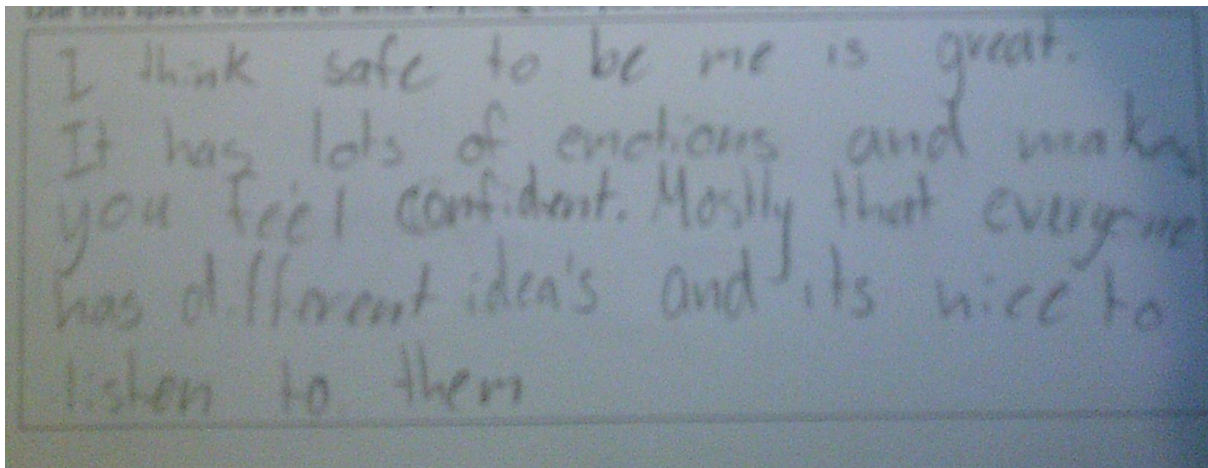 I think safe to be me is great.
It has lots of emotions and makes
you feel confident. Mostly that everyone
has different idea's and its nice to
listen to them